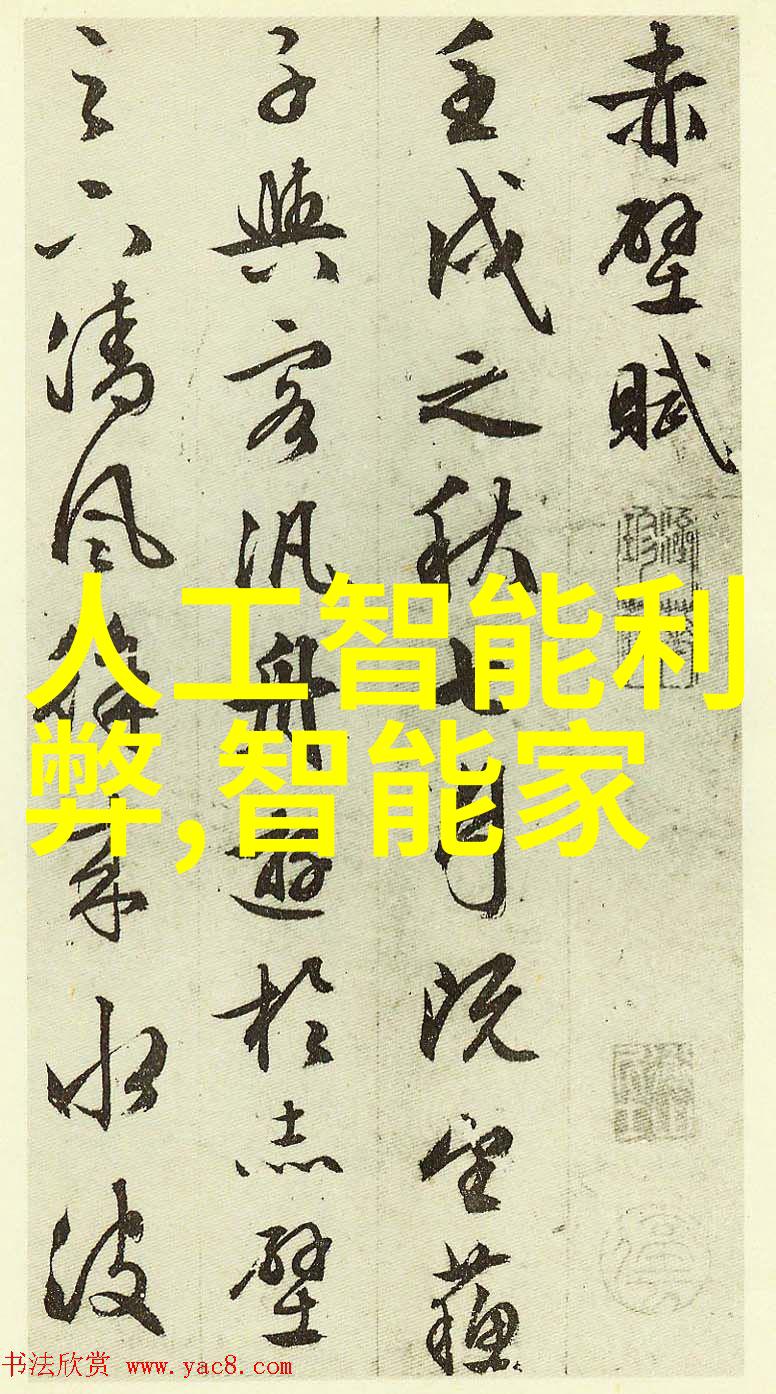 赤壁賦
壬戌之秋七月既望蘇
子與客汎舟遊於赤壁
之下清風徐來水波
人工智能利
弊,智能家
书法欣赏 www.yac8.com